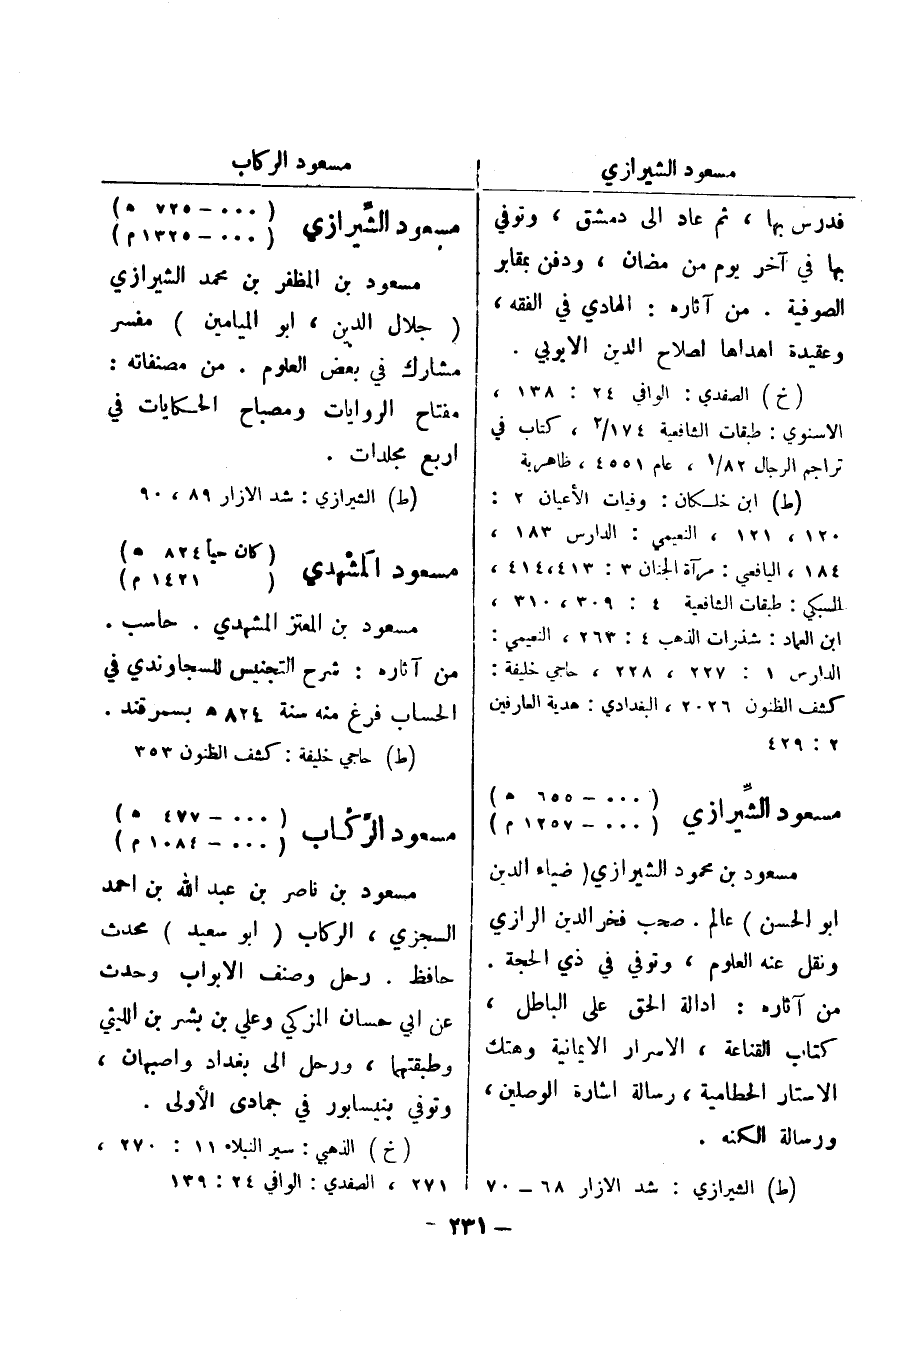 مسعود الشيرازي
فدرس بها ، ثم عاد الى دمشق ، وتوفي
بها في آخر يوم من مضان ، ودفن بمقابر
الصوفية . من آثاره : الهادي في الفقه ،
وعقيدة اهداها اصلاح الدين الايوبي .
(خ) الصفدي : الوافي ٢٤ : ١٣٨ ،
الاسنوي : طبقات الشافعية ١٧٤/٢ ، كتاب في
تراجم الرجال ٨٢/١ ، عام ٤٥٥١ ، ظاهرية
(ط) ابن خلكان : وفيات الأعيان ٢ :
١٢٠ ، ١٢١ ، النعيمي : الدارس ١٨٣ ،
١٨٤ ، اليافعي : مرآة الجنان ٣ : ٤١٣،٤١٤ ،
السبكي : طبقات الشافعية ٤ : ٣٠٩ ، ٣١٠ ،
ابن العماد : شذرات الذهب ٤ : ٢٦٣ ، النعيمي :
الدارس ١ : ٢٢٧ ، ٢٢٨ ، حاجي خليفة :
كشف الظنون ٢٠٢٦ ، البغدادي : هدية العارفين
٢ : ٤٢٩
مسعود الشِّيرازي ( ٠٠٠ – ٦٥٥ ه )
( ٠٠٠ – ١٢٥٧ م )
مسعود بن محمود الشيرازي ( ضياء الدين
ابو الحسن ) عالم . صحب فخر الدين الرازي
ونقل عنه العلوم ، وتوفي في ذي الحجة .
من آثاره : ادالة الحق على الباطل ،
كتاب القناعة ، الاسرار الايمانية وهتك
الاستار الحطامية ، رسالة اشارة الوصلين ،
ورسالة الكنه .
(ط) الشيرازي : شد الازار ٦٨ – ٧٠
مسعود الركاب
مسعود الشِّيرازي ( ٠٠٠ – ٧٢٥ ه )
( ٠٠٠ – ١٣٢٥ م )
مسعود بن المظفر بن محمد الشيرازي
( جلال الدين ، ابو الميامين ) مفسر
مشارك في بعض العلوم . من مصنفاته :
مفتاح الروايات ومصباح الحكايات في
اربع مجلدات .
(ط) الشيرازي : شد الازار ٨٩ ، ٩٠
مسعود المَشْهدي ( كان حياً ٨٢٤ ه )
( ١٤٢١ م )
مسعود بن المعتز المشهدي . حاسب .
من آثاره : شرح التجنيس للسجاوندي في
الحساب فرغ منه سنة ٨٢٤ ه بسمرقند .
(ط) حاجي خليفة : كشف الظنون ٣٥٣
مسعود الرَّكَّاب ( ٠٠٠ – ٤٧٧ ه )
( ٠٠٠ – ١٠٨٤ م )
مسعود بن ناصر بن عبد الله بن احمد
السجزي ، الركاب ( ابو سعيد ) محدث
حافظ . رحل وصنف الابواب وحدث
عن ابي حسان المزكي وعلي بن بشر بن الليثي
وطبقتها ، ورحل الى بغداد واصبهان ،
وتوفي بنيسابور في جمادى الأولى .
(خ) الذهبي : سير النبلاء ١١ : ٢٧٠ ،
٢٧١ ، الصفدي : الوافي ٢٤ : ١٣٩
– ٢٣١ –